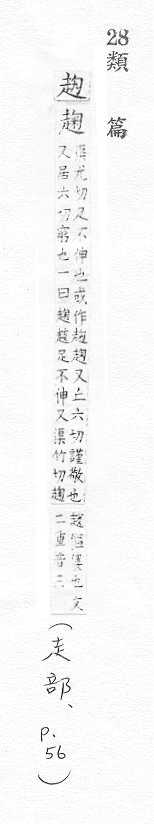 28類 篇
趜 趜
渠尤切又不伸也或作趜趜又丘六切謹敬也
又居六切窮也一曰趜趚足不伸又渠竹切趜
趚 也文
二重音三
(走部、p.56)